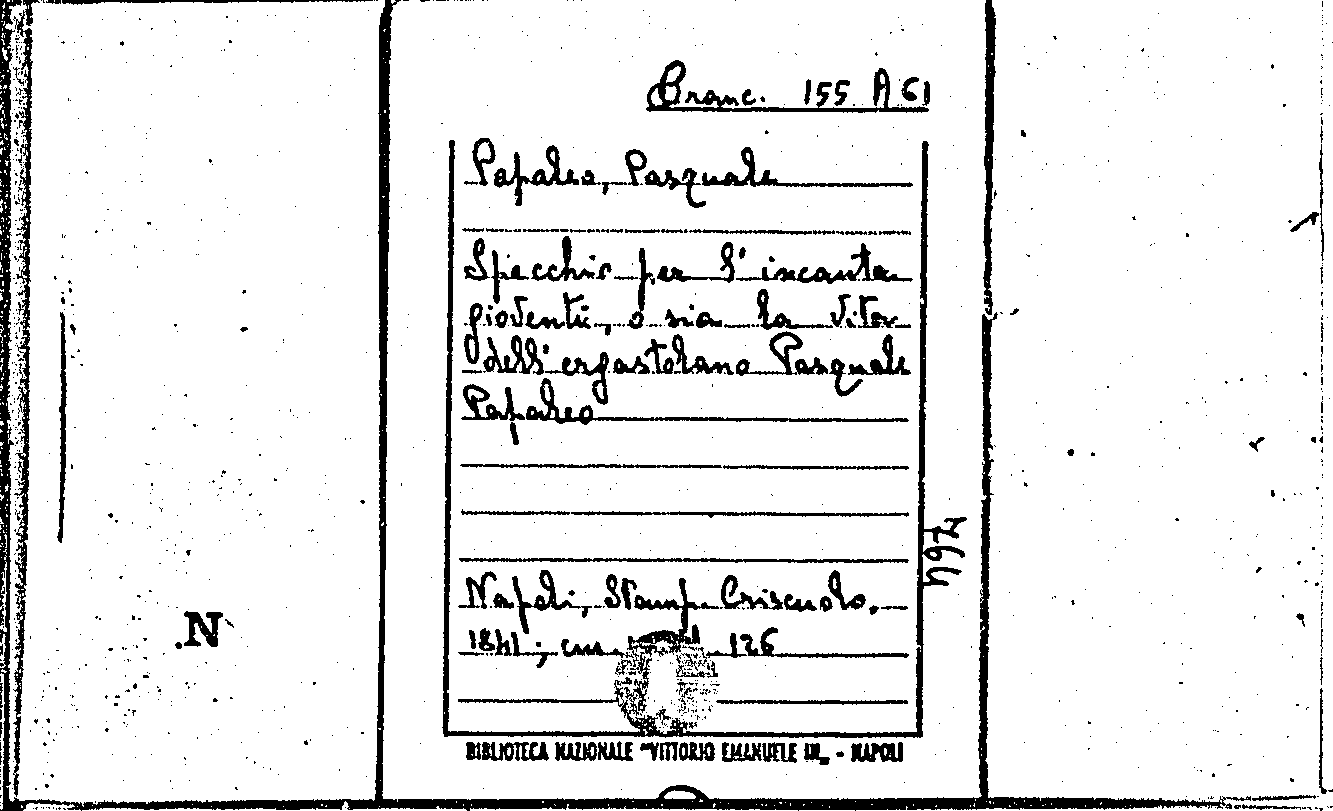 Branc. 155 A 61
Papaleo, Pasquale
Specchio per l'incauta
gioventù, o sia la vita
dell'ergastolano Pasquale
Papaleo
Napoli, Stamp. Criscuolo,
1841; cm. 126
BIBLIOTECA NAZIONALE "VITTORIO EMANUELE III„ - NAPOLI
N